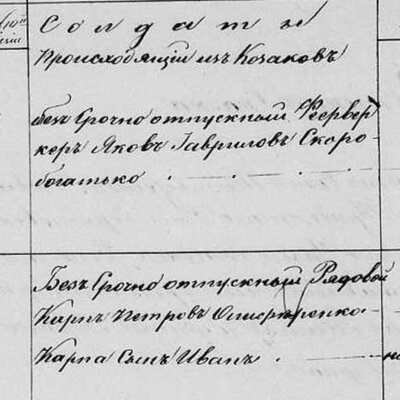 Солдаты
Происходящій изъ Козаковъ
безъ Срочно отпускный Феервер
керъ Яковъ Гавриловъ Скоро-
богатько
Безъ Срочно отпускный Рядовой
Карпъ Петровъ
Карпа Сынъ Иванъ